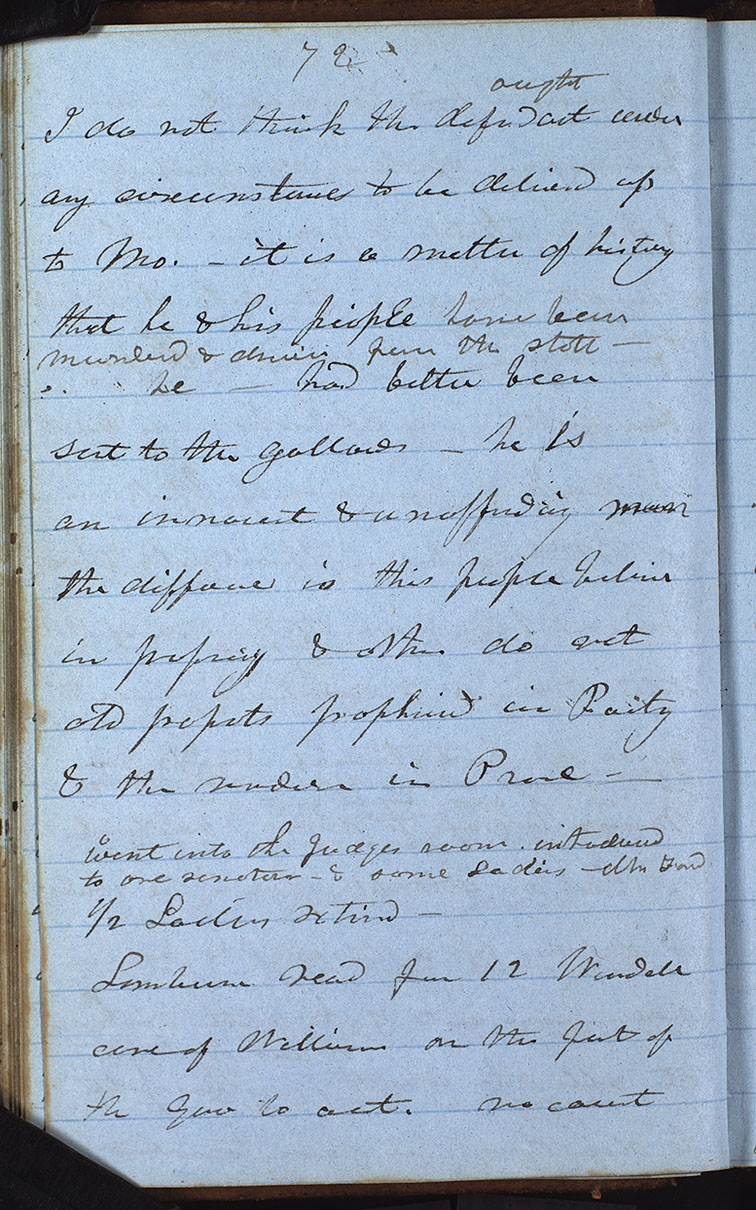 72
ought
I do not think the defendant under
any circumstances to be deliverd up
to Mo. — it is a matter of history
that he & his people have been
murderd & driven from the state —
he — had better been
sent to the gallows — he is
an innocent & unoffending man
the differance is this people believe
in prophecy & others do not
old prophets prophisied in Poetry
& the modern in Prose —
went into the Judges room. introduced
to one senator — & some Ladies —
1/2 Ladies retired —
Lamburn read from 12 Wendell
case of Williams on the
the Gov to act. no court